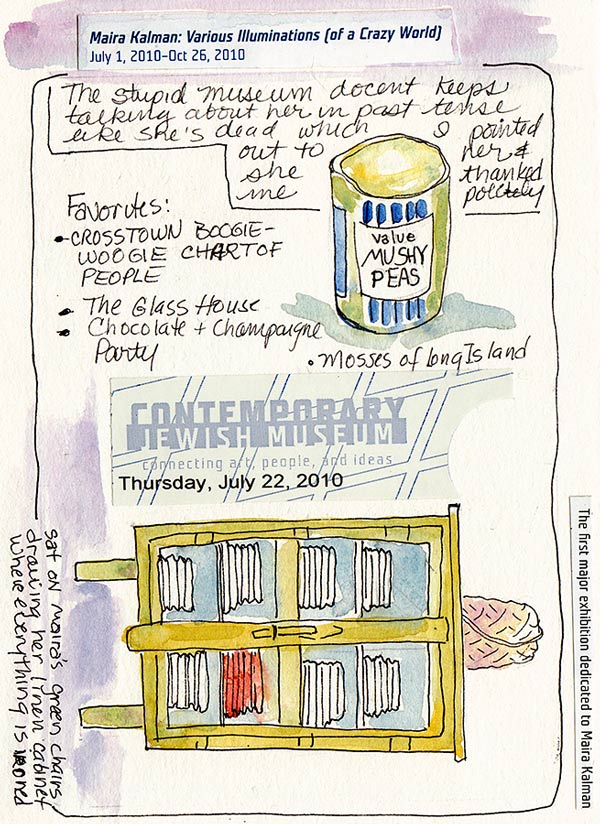 Maira Kalman: Various Illuminations (of a Crazy World)
July 1, 2010–Oct 26, 2010
The stupid museum docent keeps
talking about her in past tense
like she's dead which I pointed
out to her &
she thanked
me politely
Favorites:
•CROSSTOWN BOOGIE-
WOOGIE CHART OF
PEOPLE
• The Glass House
• Chocolate + Champaigne
Party
• Mosses of Long Island
value
MUSHY
PEAS
CONTEMPORARY
JEWISH MUSEUM
connecting art, people, and ideas
Thursday, July 22, 2010
sat on Maira's green chairs
drawing her linen cabinet
where everything is ironed
The first major exhibition dedicated to Maira Kalman